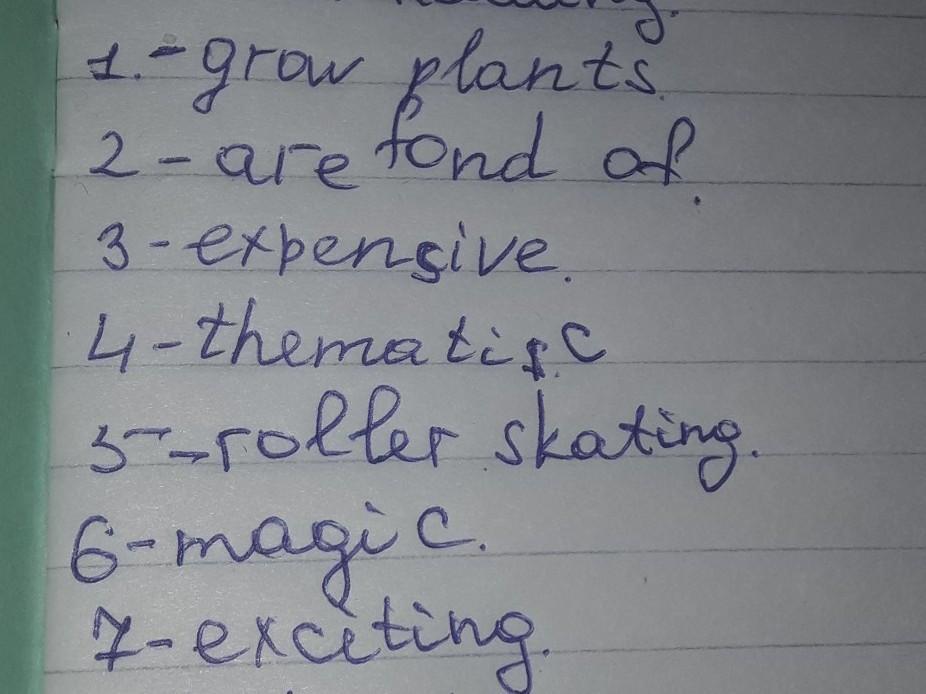 1.-grow plants.
2-are fond of.
3-expensive.
4-thematic
5-roller skating.
6-magic.
7-exciting.